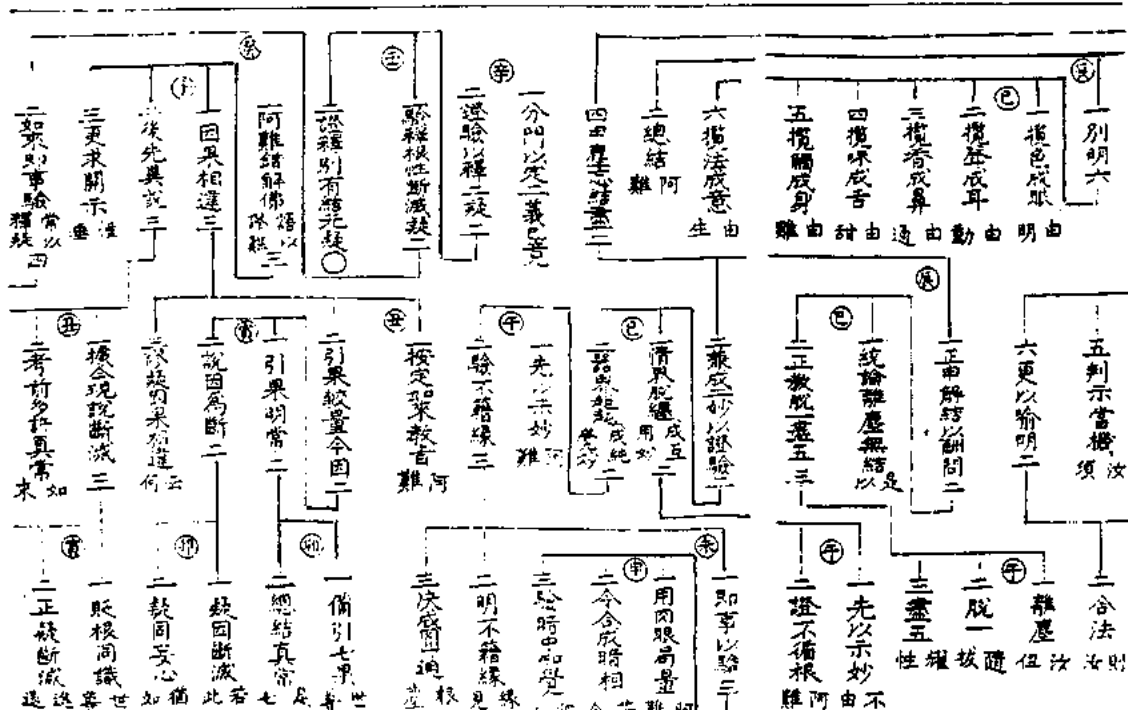 一別明六
一攬色成眼
由明
二攬聲成耳
由動
三攬香成鼻
由通
四攬味成舌
由甜
五攬觸成身
由離
六攬法成意
由生
二總結
阿難
四由塵忘結盡二
一分門以定二義
二證驗以釋二疑
一驗釋根性斷滅疑二
二證釋別有結元疑
一阿難結解佛
悟以
三
一因果相違三
二後先異說三
三更求開示
惟垂
二如來即事驗
常以
釋疑
四
五判示當機
汝須
六更以喻明二
一正申解結以酬問二
一統論離塵無結
是以
二正教脫一盡五三
二兼成二妙以證驗二
一情界脫纏
成互用妙
二
二器界超越
成純覺妙
二
一先以示妙
阿難
二驗不籍緣三
一按定如來教旨
阿難
二引果較量今因二
一引果明常二
二說因為斷二
三終疑因果相違
云何
一據今現說斷滅三
二考前多許真常
如來
二合法
則汝
一離塵
汝但
二脫一
隨拔
三盡五
耀性
一先以示妙
不由
二證不循根
阿難
一即事以驗三
一用肉眼局量
二令合成暗相
三驗時中知覺
二明不籍緣
緣見
三決成圓通
根塵
一備引七果
世尊
二總結真常
是七
一疑因斷滅
若此
二疑同妄心
猶如
一貶根同識
世尊
二正疑斷滅
進退
庚
己
辛
壬
癸
丑
寅
卯
辰
巳
午
未
申